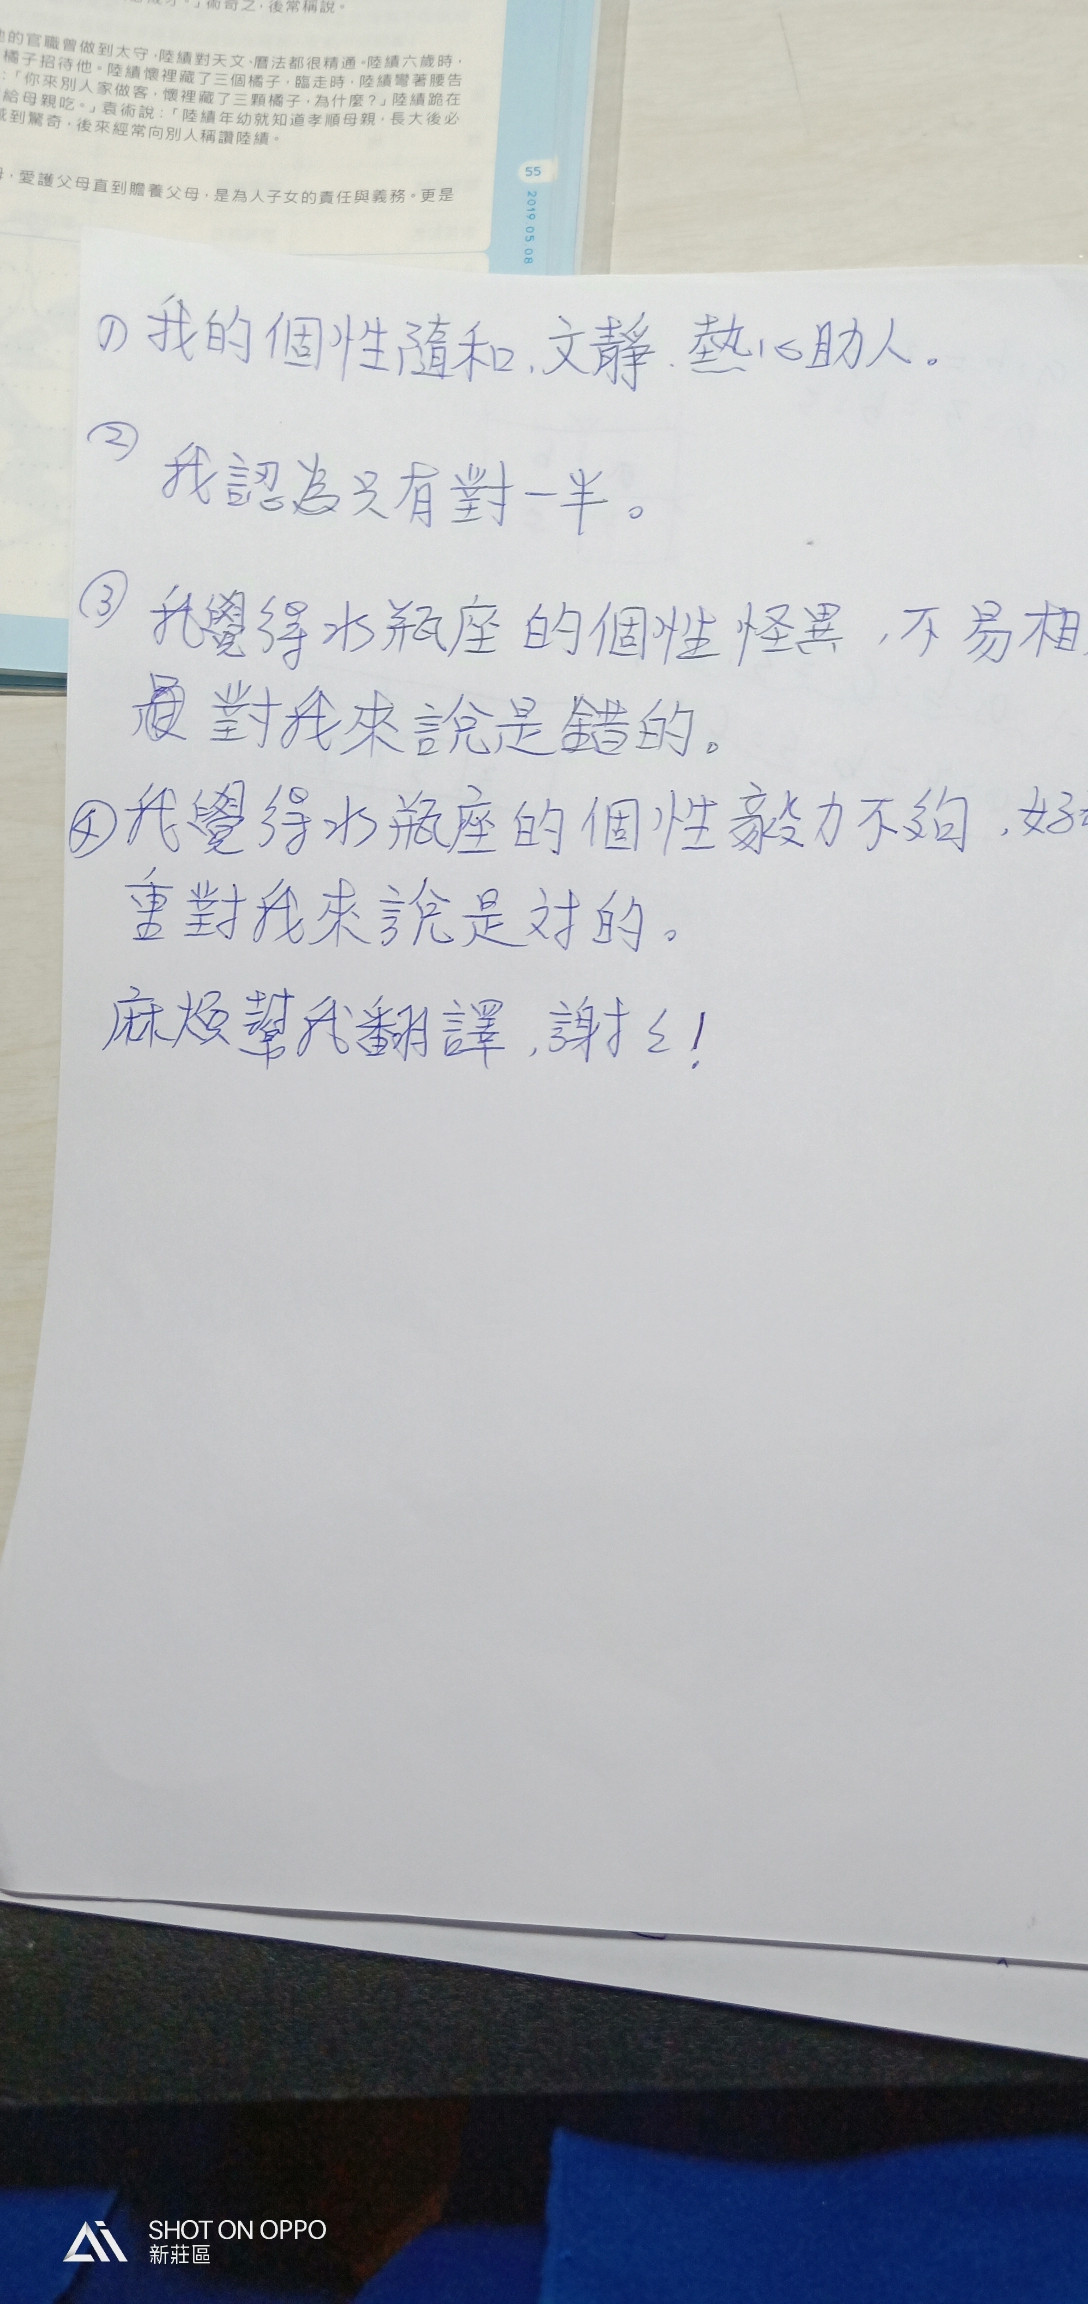 術奇之，後常稱說。
的官職曾做到太守，陸績對天文、曆法都很精通。陸績六歲時，
橘子招待他。陸績懷裡藏了三個橘子，臨走時，陸績彎著腰告
：「你來別人家做客，懷裡藏了三顆橘子，為什麼？」陸績跪在
給母親吃。」袁術說：「陸績年幼就知道孝順母親，長大後必
感到驚奇，後來經常向別人稱讚陸績。
，愛護父母直到贍養父母，是為人子女的責任與義務。更是
55
2019.05.08
① 我的個性隨和、文靜、熱心助人。
② 我認為只有對一半。
③ 我覺得水瓶座的個性怪異，不易相
對我來說是錯的。
④ 我覺得水瓶座的個性毅力不夠，好
重對我來說是对的。
麻煩幫我翻譯，謝く！
SHOT ON OPPO
新莊區